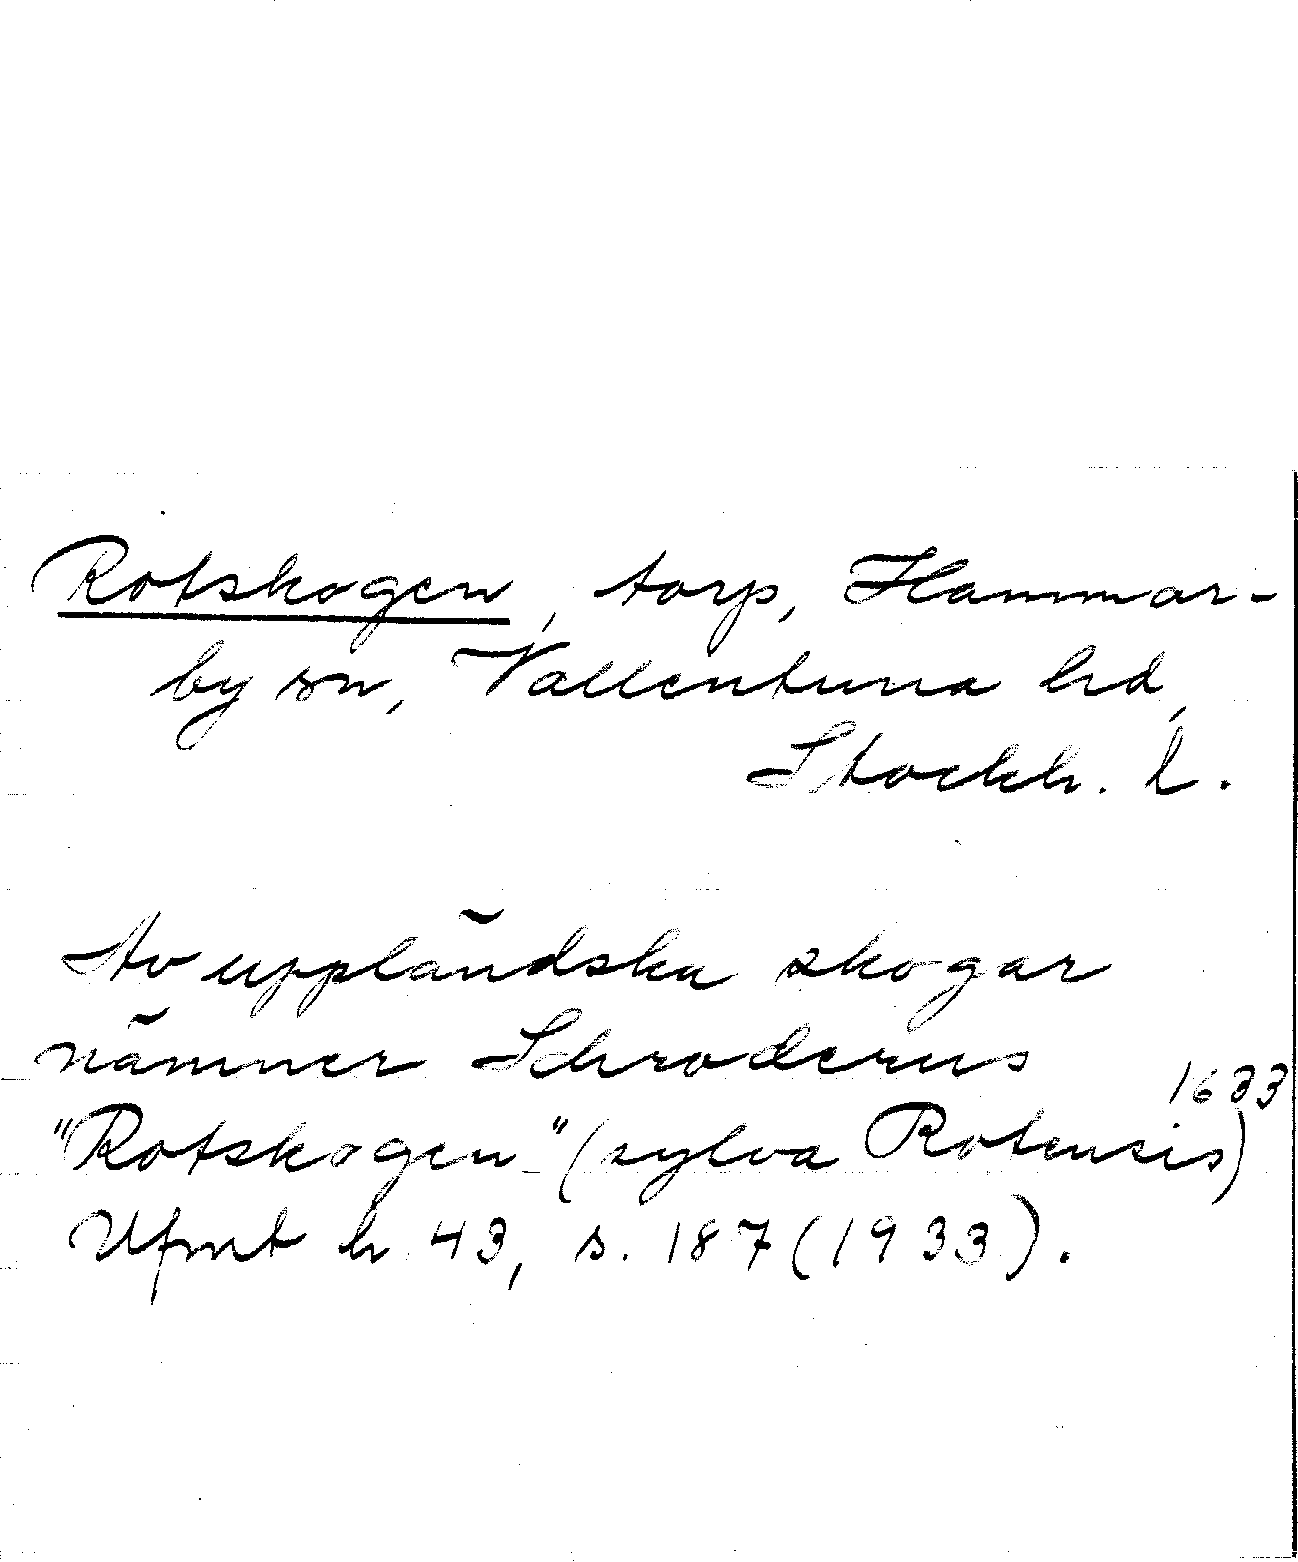 Rotskogen, torp, Hammar-
by sn, Vallentuna hd,
Stockh. l.
Av uppländska skogar
nämner Schroderus
1633
"Rotskogen" (sylva Rotensis)
Ufmt h 43, s. 187 (1933).